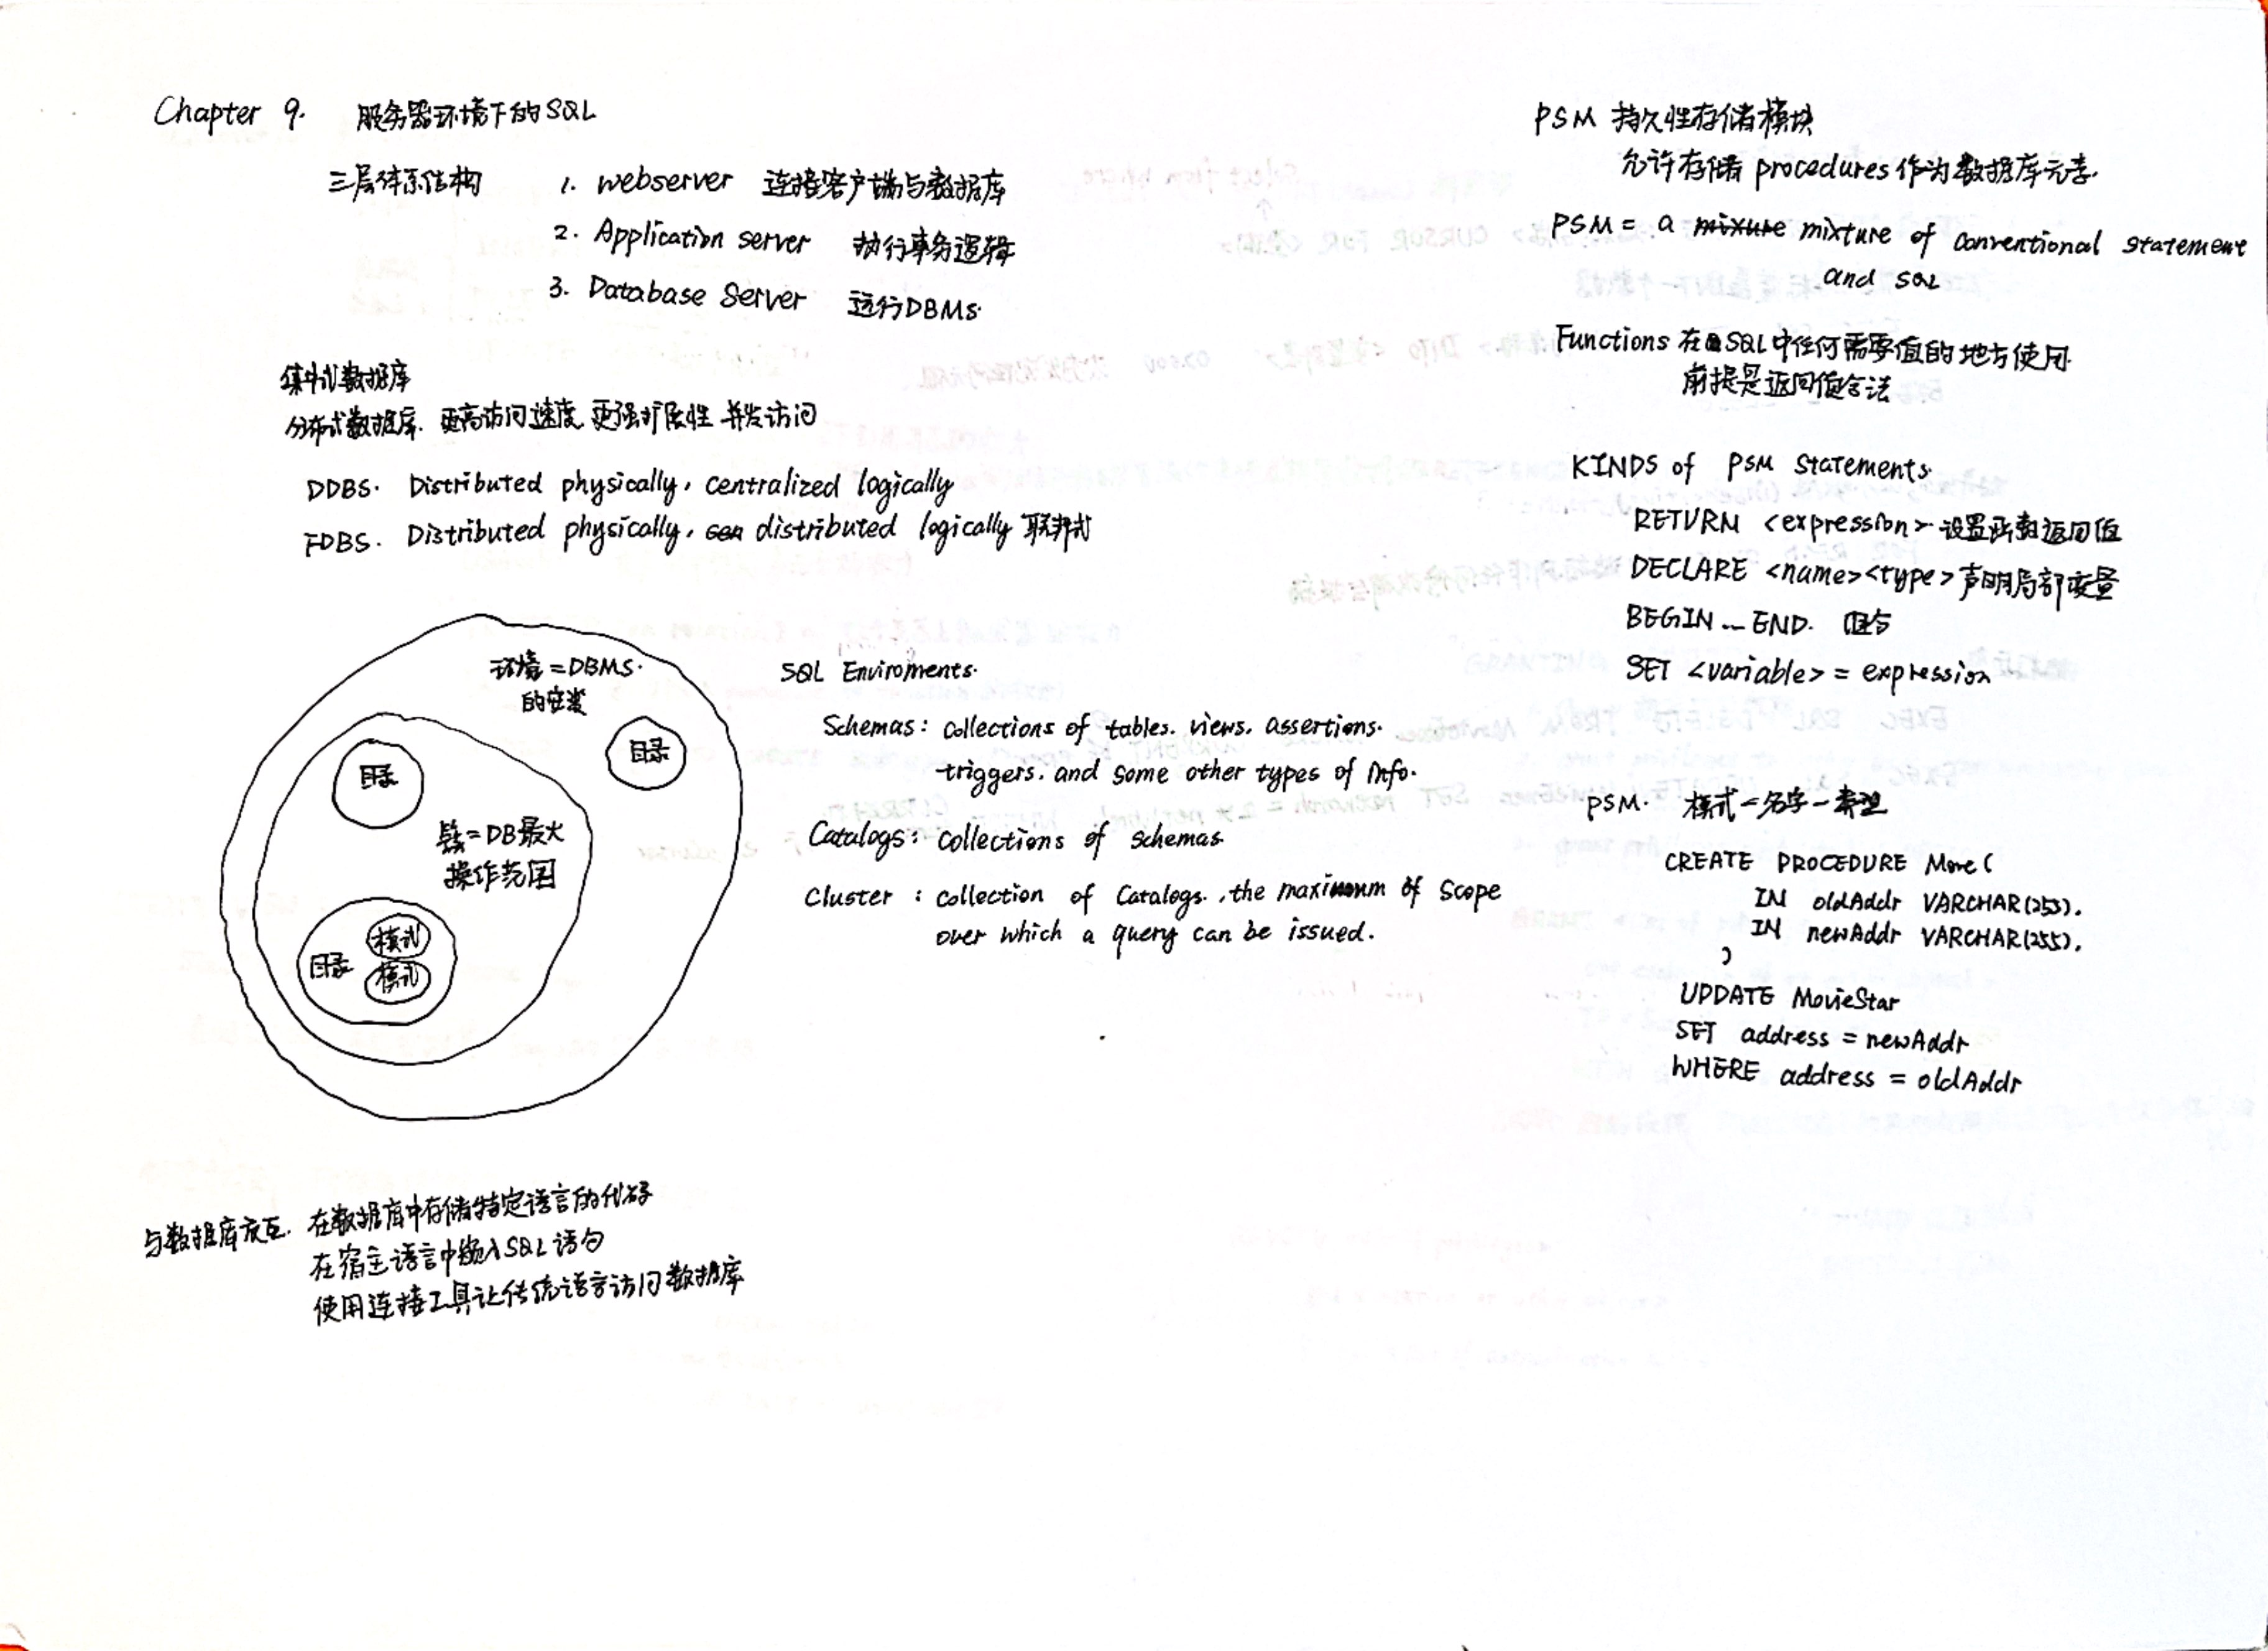 Chapter 9. 服务器环境下的SQL
三层体系结构 1. webserver 连接客户端与数据库
2. Application server 执行事务逻辑
3. Database Server 运行DBMS.
集中式数据库
分布式数据库. 更高访问速度 更强扩展性 并发访问
DDBS. Distributed physically, centralized logically
FDBS. Distributed physically, cen distributed logically 联邦式
环境=DBMS.
的安装
目录
目录
簇=DB最大
操作范围
模式
目录
模式
SQL Enviroments.
Schemas: collections of tables. views. assertions.
triggers. and some other types of info.
Catalogs: collections of schemas
Cluster: collection of Catalogs. , the maximum of scope
over which a query can be issued.
与数据库交互. 在数据库中存储特定语言的代码
在宿主语言中嵌入SQL语句
使用连接工具让传统语言访问数据库
PSM 持久性存储模块
允许存储 procedures 作为数据库元素.
PSM = a mixure mixture of conventional statement
and SQL
Functions 在SQL中任何需要值的地方使用.
前提是返回值合法
KINDS of PSM Statements.
RETURN <expression> 设置函数返回值
DECLARE <name><type> 声明局部变量
BEGIN ... END.
SET <variable> = expression
PSM. 模式-名字-类型
CREATE PROCEDURE Move (
IN oldAddr VARCHAR(255).
IN newAddr VARCHAR(255).
)
UPDATE MovieStar
SET address = newAddr
WHERE address = oldAddr